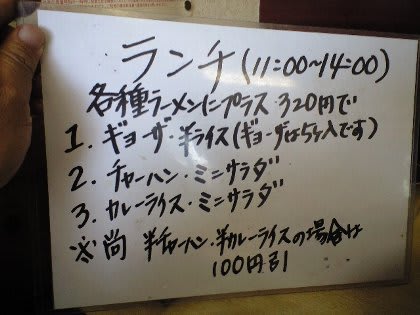 ランチ(11:00~14:00)
各種ラーメンにプラス320円で
1. ギョーザ・半ライス(ギョーザは5ケ入です)
2. チャーハン・ミニサラダ
3. カレーライス・ミニサラダ
※尚 半チャーハン・半カレーライスの場合は
100円引